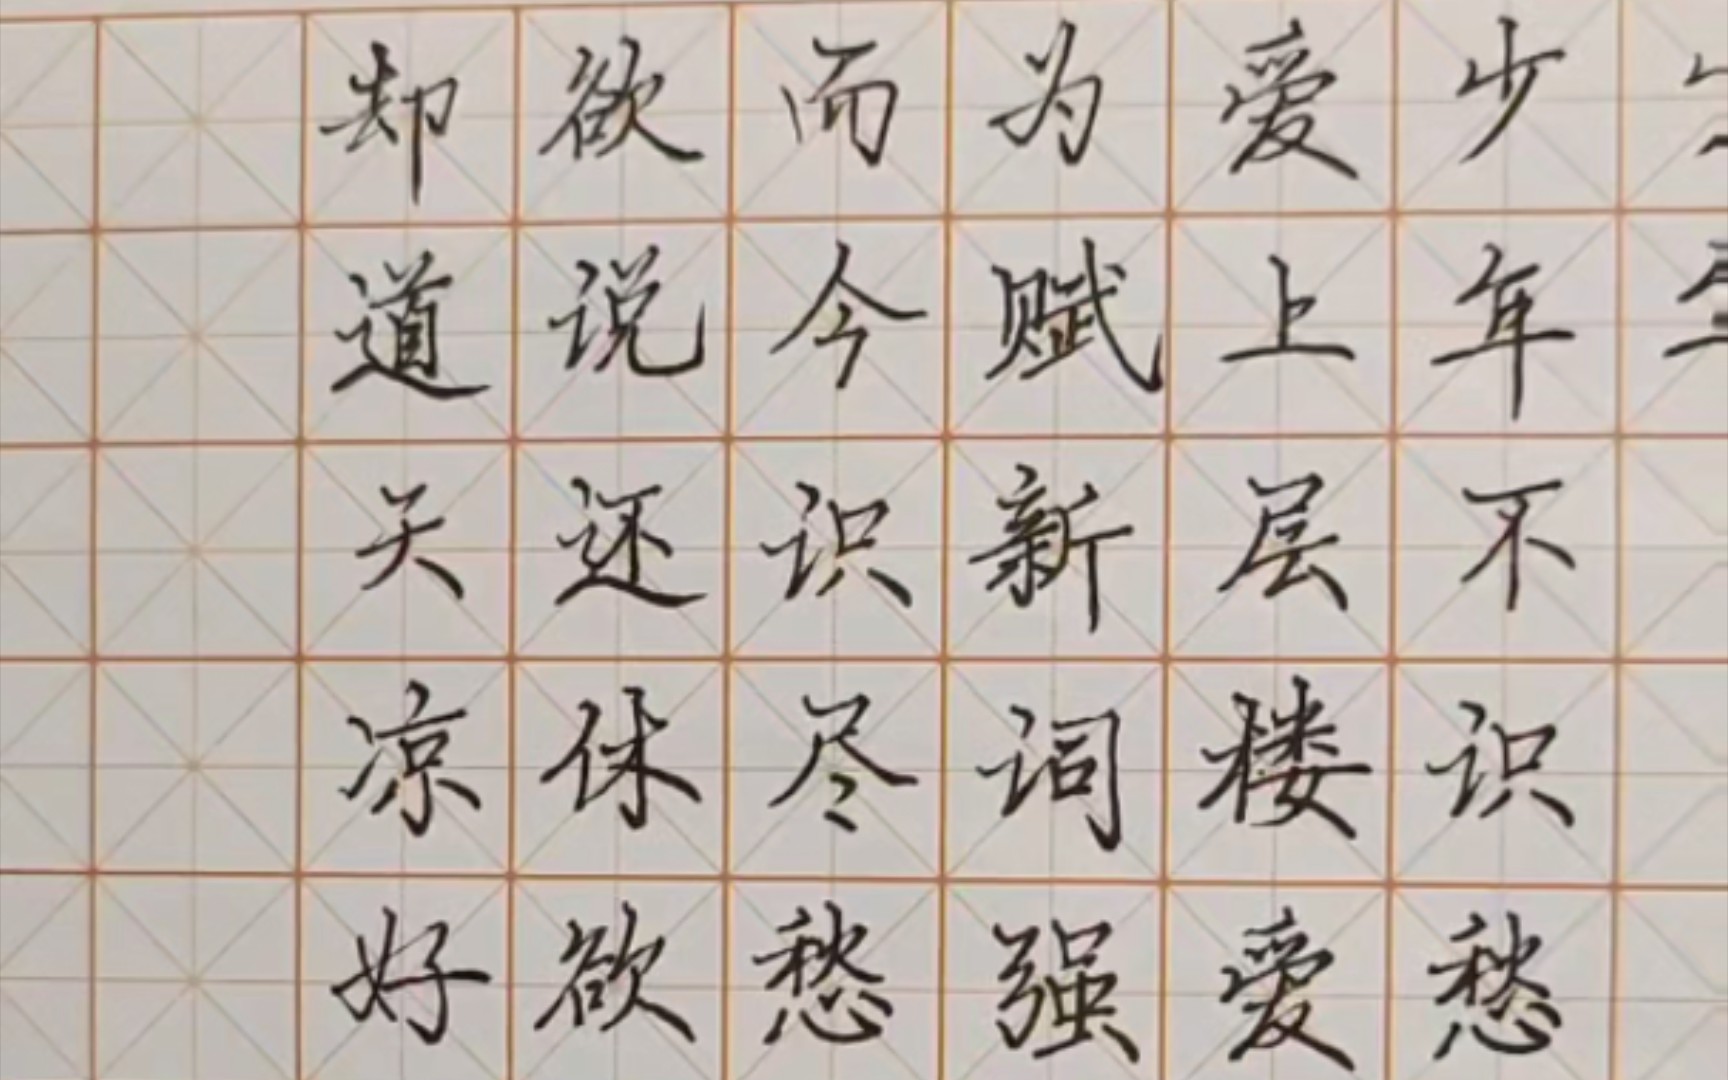 少年不识愁
爱上层楼爱
为赋新词强
而今识尽愁
欲说还休欲
却道天凉好